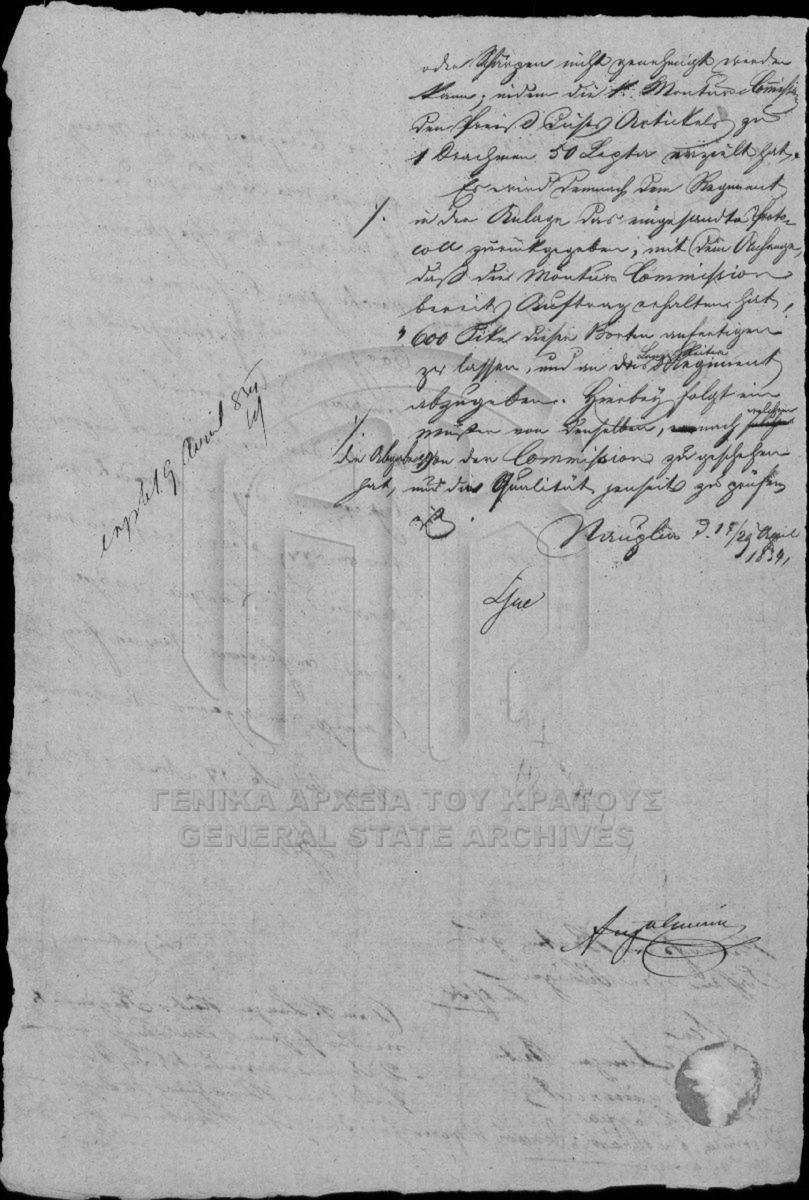 oder Schärpen nicht genehmigt werden
kann, indem die k. Montur Commission
den Preiß dieses Artickels zu
1 Drachmen 50 Lepta erzielt hat.
Es wird demnach dem Regiment
in der Anlage das eingesandte Proto-
coll zurückgegeben, mit dem Anhange,
daß die Montur Commission
bereits Auftrag erhalten hat,
600 Stücke dieser Borten anfertigen
zu lassen, und an das Regiment
abzugeben. Hierbey folgt ein
Muster von denselben, nach welchem
die Abgabe von der Commission zu geschehen
hat, und die Qualität jenseits zu prüfen
ist.
Nauplia d. 17/29 April
1834
exped. 19 April 834
ΓΕΝΙΚΑ ΑΡΧΕΙΑ ΤΟΥ ΚΡΑΤΟΥΣ
GENERAL STATE ARCHIVES